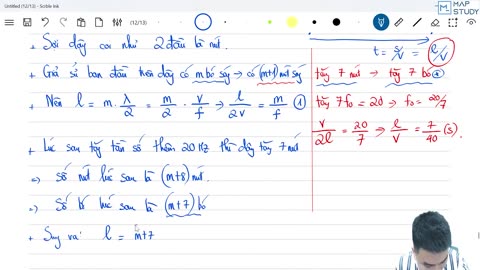 Untitled (12/13) - Scrble Ink
(12/13)
MAP STUDY
+ Sợi dây coi như 2 đầu là nút.
+ Giả sử ban đầu trên dây có m bó sóng → có (m+1) nút sóng
+ Nên l = m . λ/2 = m/2 . v/f ⇒ l/2v = m/f ①
+ Lúc sau tăng tần số thêm 20 Hz thì dây tăng 7 nút
⇒ số nút lúc sau là (m+8) nút.
⇒ Số bó lúc sau là (m+7) bó
+ Suy ra: l = m+7
t = s/v = l/v
tăng 7 nút → tăng 7 bó
tăng 7f₀ = 20 → f₀ = 20/7
v/2l = 20/7 ⇒ l/v = 7/40 (s).